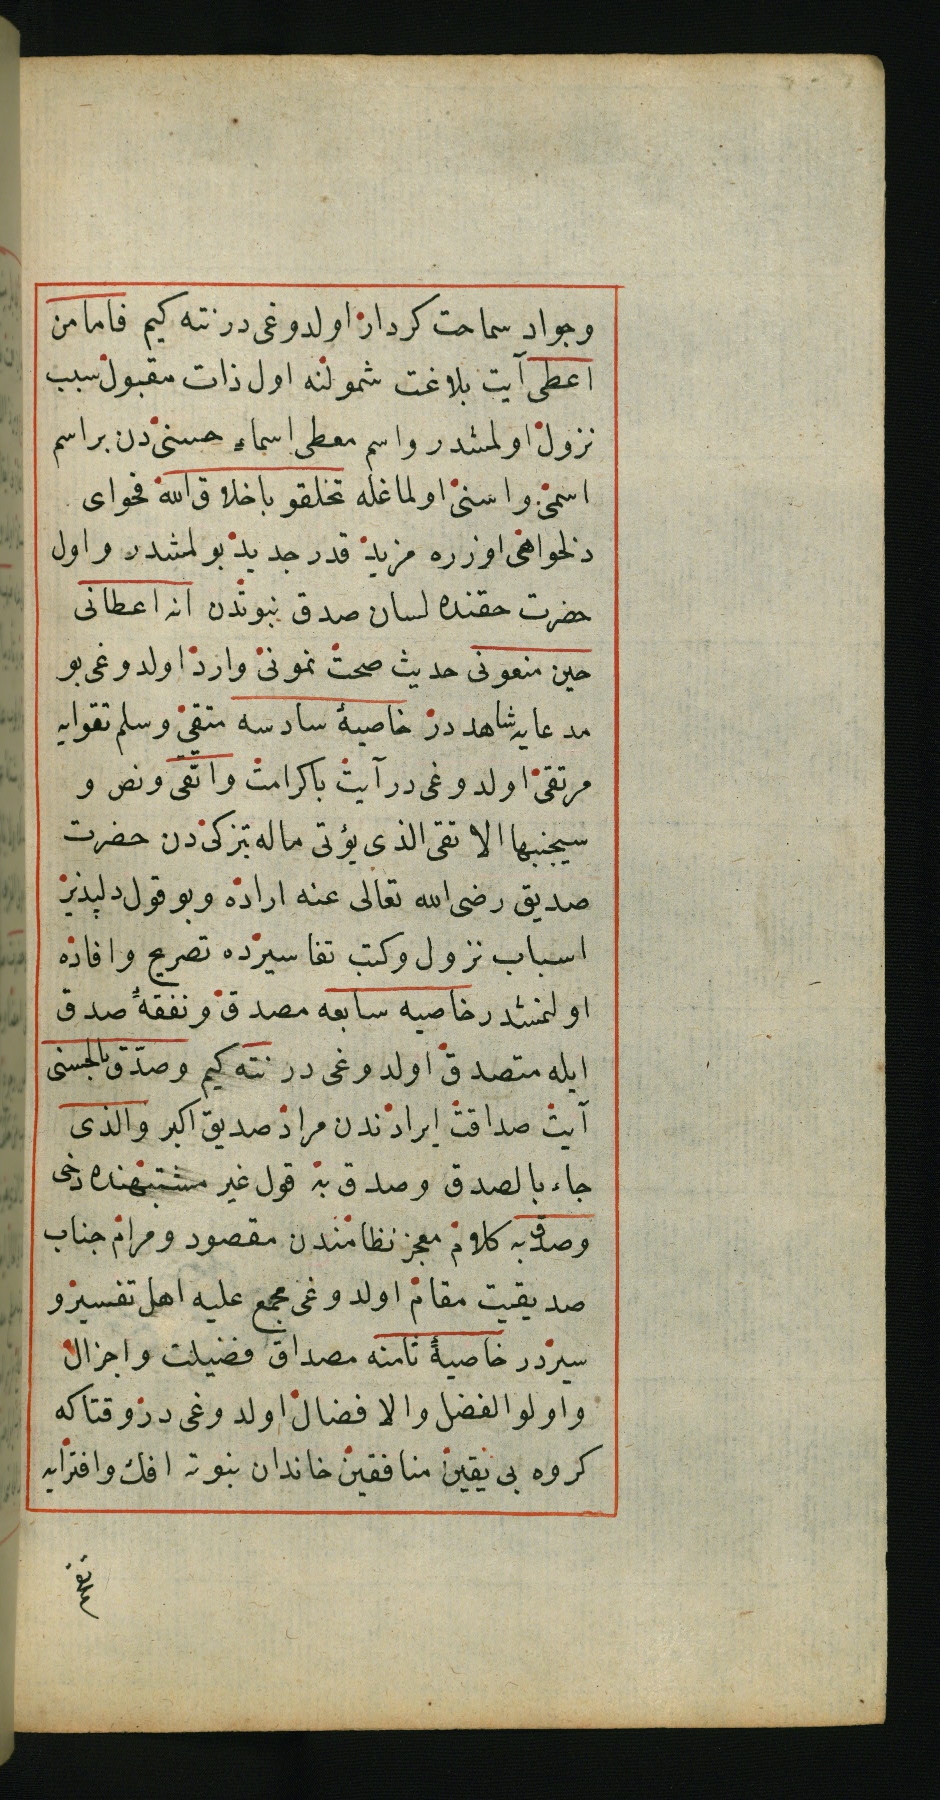 وجواد سماحت كردار اولدوغی در نته كیم فاما من
اعطی آیت بلاغت شمولنه اول ذات مقبول سبب
نزول اولمشدر واسم معطی اسماء حسنی دن بر اسم
اسمی واسنی اولماغله تخلقو باخلاق الله فحوای
دلخواهی اوزره مزید قدر جدید بولمشدر و اول
حضرت حقنده لسان صدق نبوتدن انه اعطانی
حین منعونی حدیث صحت نمونی وارد اولدوغی بو
مدعایه شاهد در خاصیۀ سادسه متقی وسلم تقوایه
مرتقی اولدوغی در آیت باكرامت واتقی ونص و
سیجنبها الاتقی الذی یؤتی ماله یتزكی دن حضرت
صدیق رضی الله تعالی عنه اراده وبو قول دلپذیر
اسباب نزول وكتب تفاسیرده تصریح وافاده
اولنمشدر خاصیه سابعه مصدق ونفقۀ صدق
ایله متصدق اولدوغی در نته كیم وصدّق بالحسنی
آیت صداقت ایرادندن مراد صدیق اكبر والذی
جاء بالصدق وصدق به قول غیر مشتبهنده دخی
وصدق به كلام معجز نظامندن مقصود ومرام جناب
صدیقیت مقام اولدوغی مجمع علیه اهل تفسیر و
سیردر خاصیۀ ثامنه مصداق فضیلت واجزال
واولو الفضل والافضال اولدوغی در وقتاكه
كروه بی یقین منافقین خاندان نبوته افك وافترایه